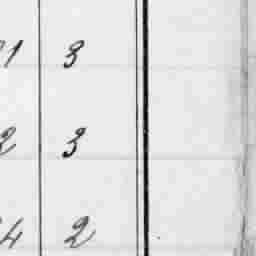 1 3
2 3
4 2